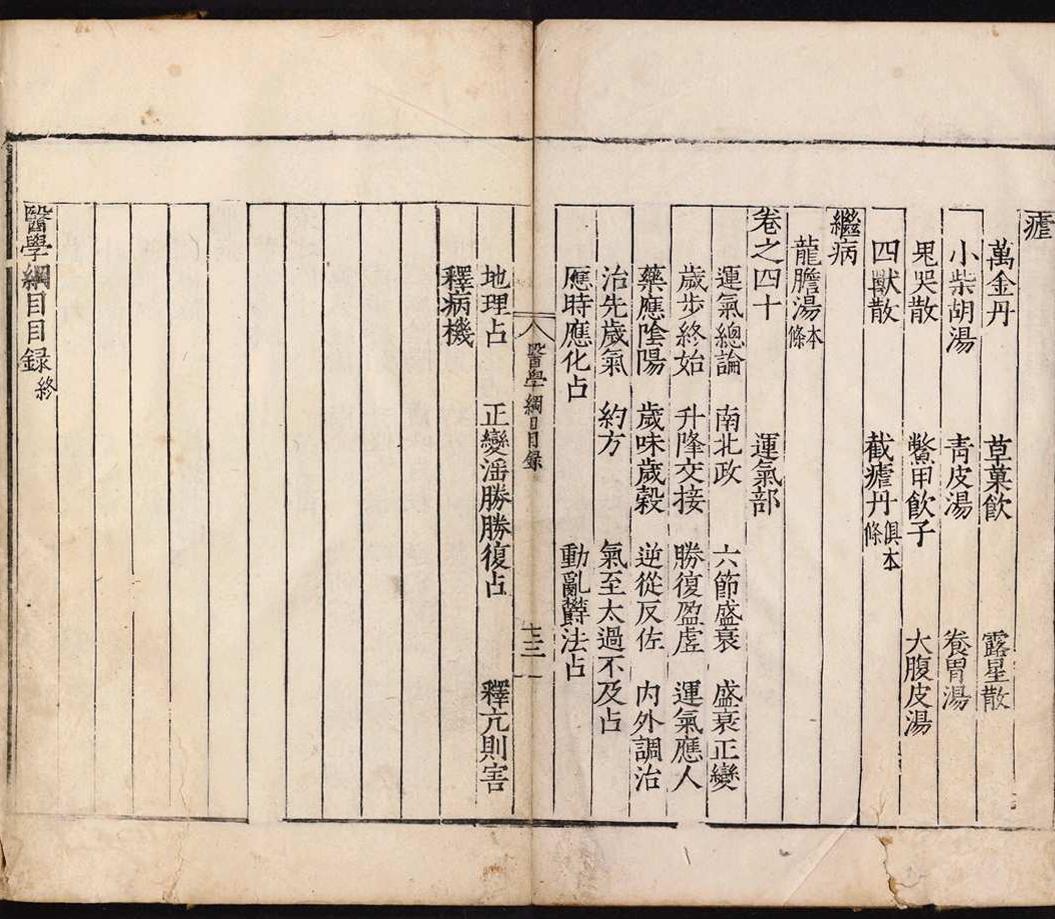 瘧
萬金丹 草菓飲 露星散
小柴胡湯 青皮湯 養胃湯
鬼哭散 鱉甲飲子 大腹皮湯
四獸散 截瘧丹俱本條
繼病
龍膽湯本條
卷之四十 運氣部
運氣總論 南北政 六節盛衰 盛衰正變
歲步終始 升降交接 勝復盈虛 運氣應人
藥應陰陽 歲味歲穀 逆從反佐 内外調治
治先歲氣 約方 氣至太過不及占
應時應化占 動亂鬱法占
醫學綱目目録
地理占 正變滛勝勝復占 釋亢則害
釋病機
醫學綱目目録終